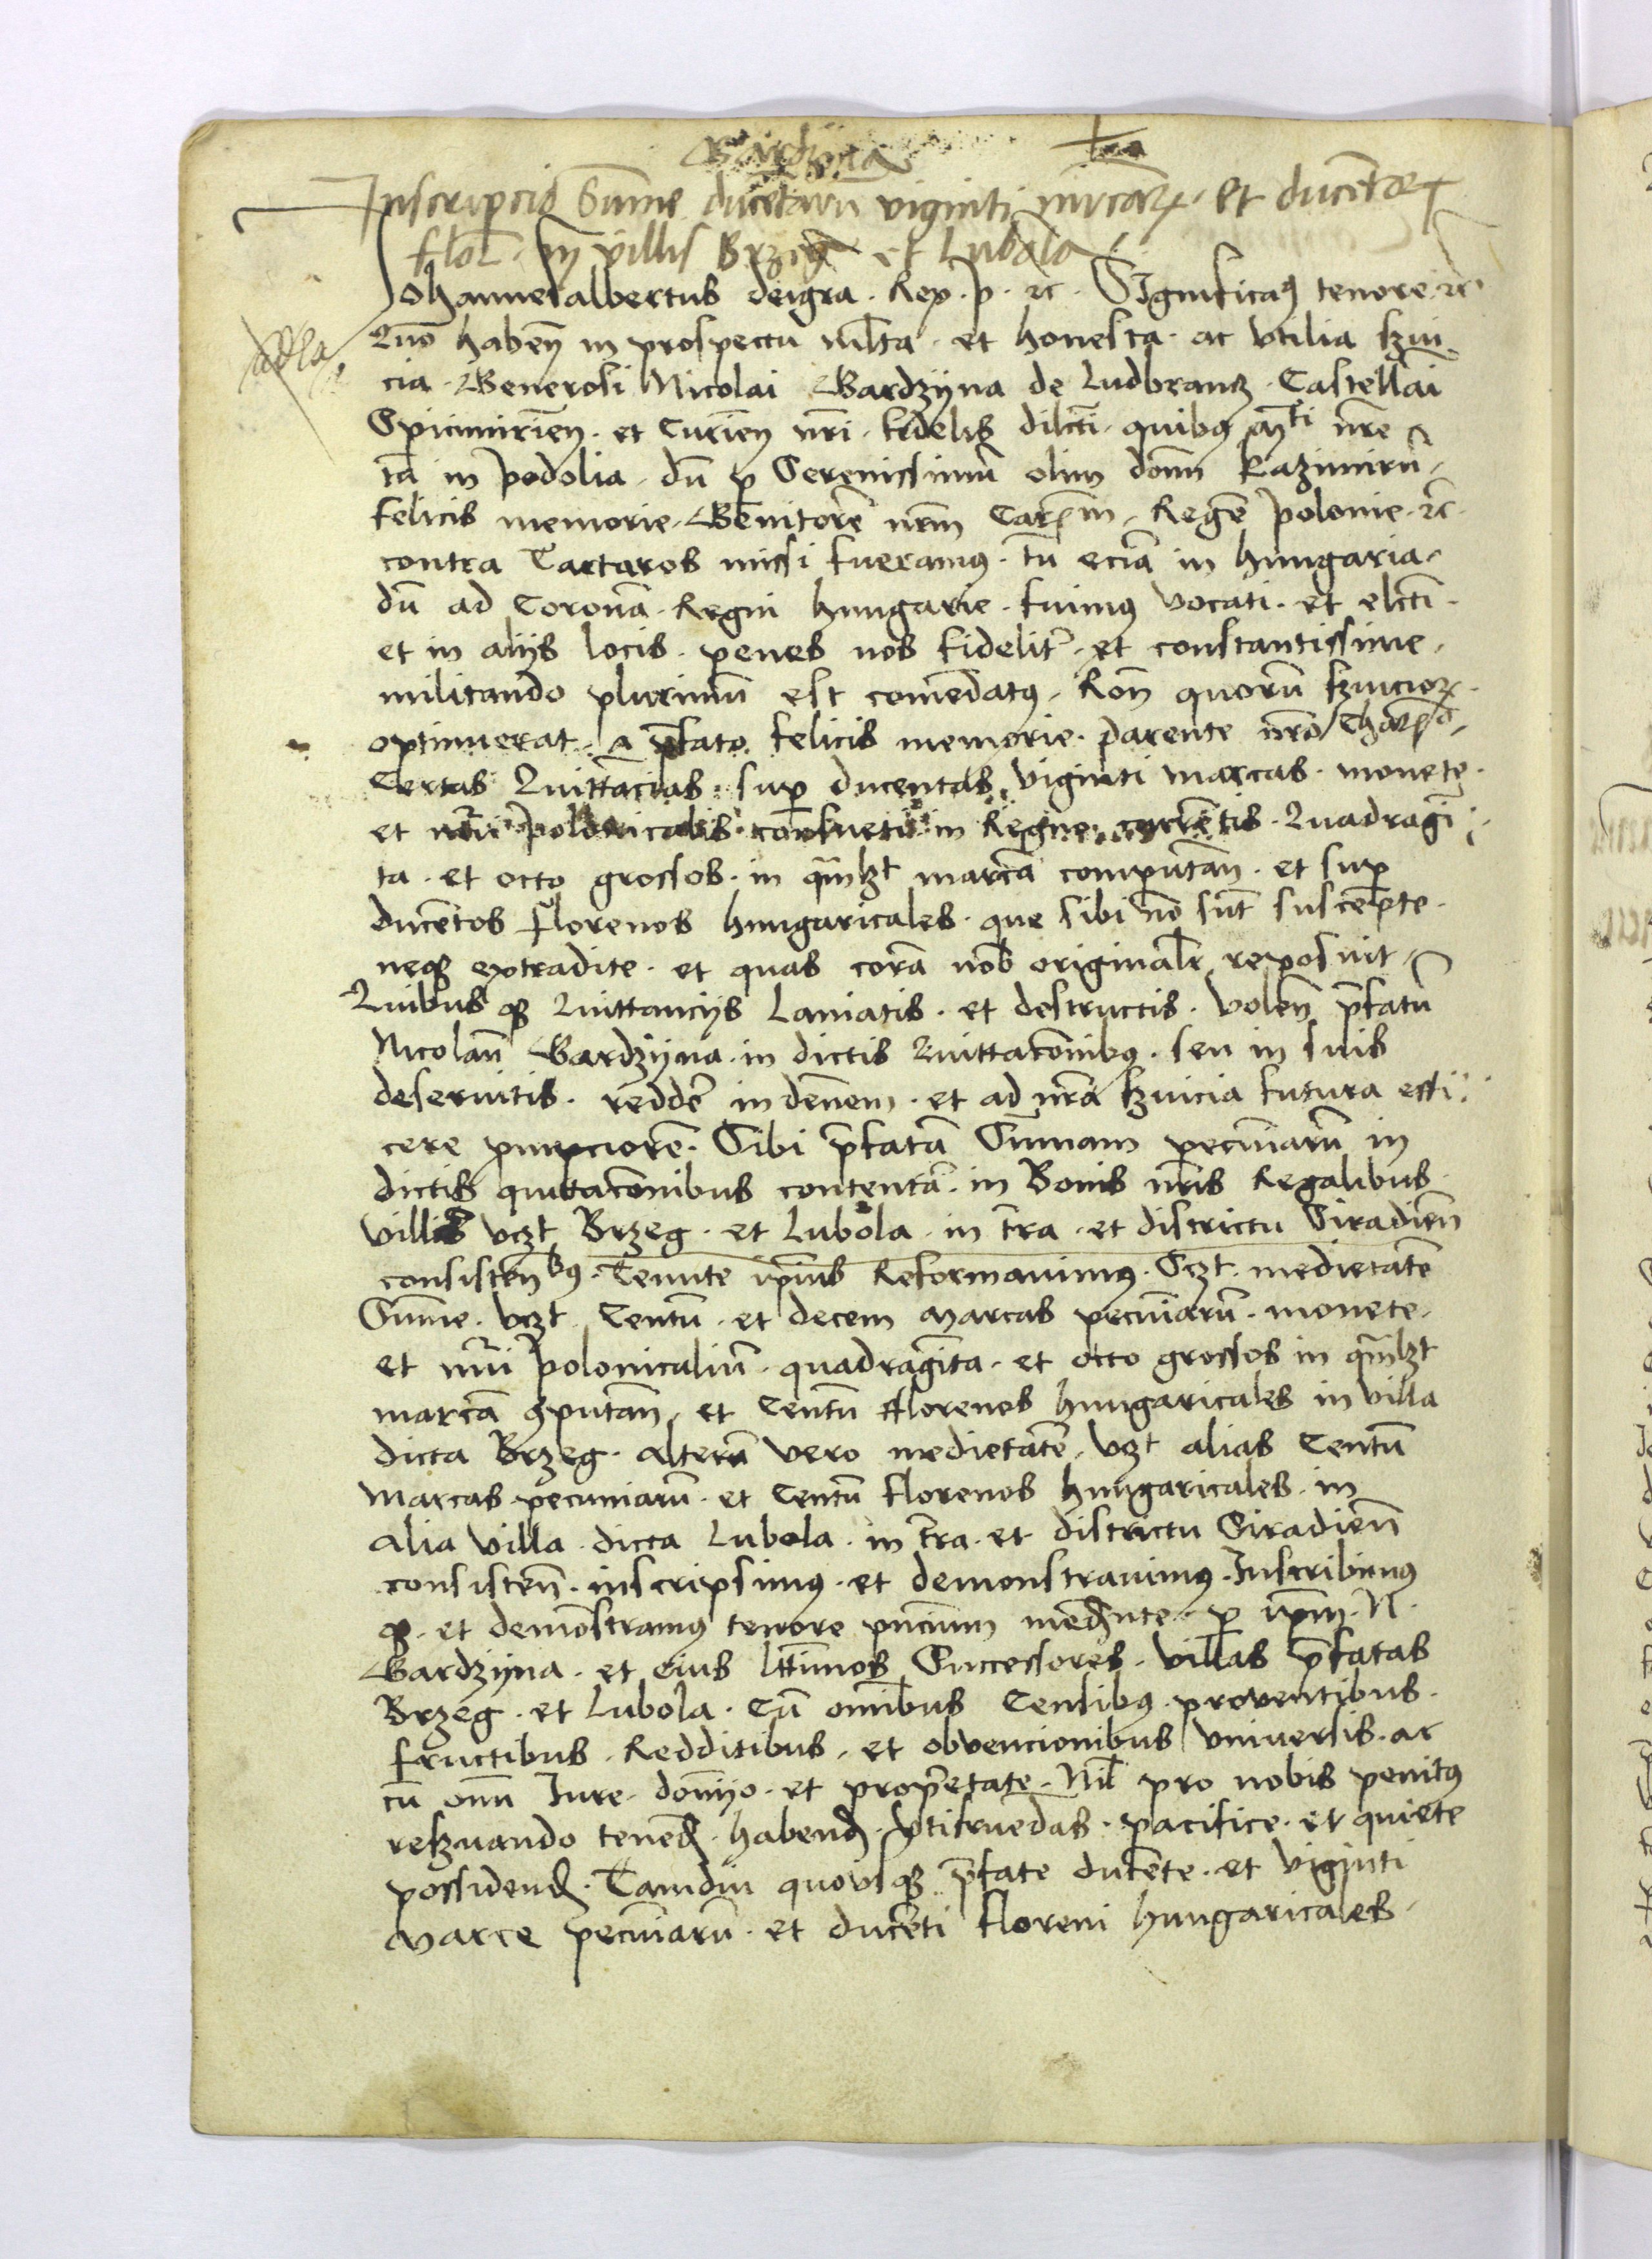 Gardzijna
Inscripcio Sume ducetaru viginti mrcaꝝ et ducetoꝝ
flor in villis Brzeg et Lubola
Johannesalbertus deigra Rex p ꝛc Significaꝰ tenore ꝛc
Quo haben in prospectu mlta et honesta ac vtilia servi
cia Generosi Nicolai Gardzijna de Ludbrancz Castellai
Spicimirien et Curien nri fidelis dilcti quibus mti nre
ta in podolia du p Serenissimu olim domn Kazimiru
felicis memorie Genitore nrm Carm Rege polonie ꝛc
contra Tartaros missi fueramꝰ tu ecia in hungaria
du ad Corona Regni hungarie fuimꝰ vocati et elcti
et in aliis locis penes nos fidelitr et constantissime
militando plurimu est comedatꝰ Ron quoru serviciorꝝ
optinuerat a pfato felicis memorie parente nro Charo
Certas Quittacias sup ducentas viginti marcas monete
et nuri polonicalis consueti in Regno curretis Quadragi
ta et octo grossos in qmlzt marca computan et sup
ducetos florenos hungaricales que sibi no sut suscepte
neqꝫ extradite et quas cora nob originalr reposuit
Quibus qꝫ Quittancijs Laniatis et destructis volen pfatu
Nicolau Gardzijna in dictis Quittaconibꝰ seu in suis
deservitis redde indenem et ad nra servicia futura effi
cere pmpciore Sibi pfata Summam pecuniaru in
dictis quittaconibus contenta in Bonis nris Regalibus
villis vczt Brzeg et Lubola in tra et districtu Siradien
consistenbꝰ Tenute ipius Reformauimꝰ Sczt medietate
Sume vczt Centu et decem Marcas pecuniaru monete
et nuri poloniculiu quadraginta et octo grossos in qmlzt
marca ꝯputan et Centu florenos hungaricales in villa
dicta Brzeg Altera vero medietate vczt alias Centu
Marcas pecuniaru et Centu florenos hungaricales in
Alia villa dicta Lubola in tra et districtu Siradien
consisten inscripsimꝰ et demonstrauimꝰ Inscribimꝰ
qꝫ et demostramꝰ tenore pncium mednte p ipm N
Gardzijna et eius lttimos Successores villas pfatas
Brzeg et Lubola Cu omibus Censibꝰ proventibus
fructibus Redditibus et obvencionibus vniuersis ac
cu omi Iure domijo et proprietate Nil pro nobis penitꝰ
reservando tened habend vtifruedas pacifice et quiete
possidend Tamdiu quousqꝫ pfate ducente et viginti
Marce pecuniaru et ducenti floreni hungaricales